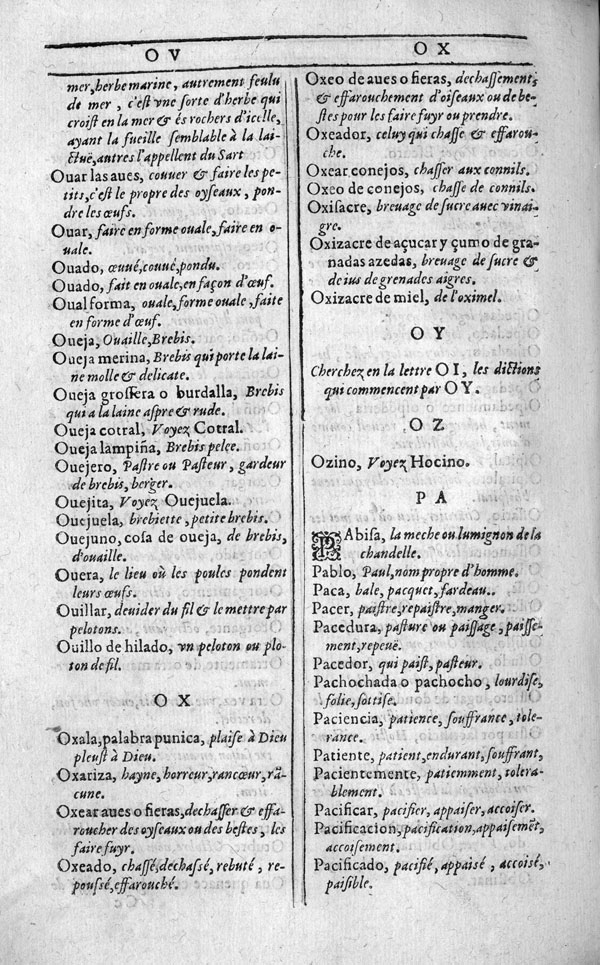 OV
mer, herbe marine, autrement feulu
de mer, c'est vne sorte d'herbe qui
croist en la mer & és rochers d'icelle,
ayant la fueille semblable à la lai-
ctuë, autres l'appellent du Sart
Ouar las aues, couuer & faire les pe-
tits, c'est le propre des oyseaux, pon-
dre les œufs.
Ouar, faire en forme ouale, faire en o-
uale.
Ouado, œuué, couué, pondu.
Ouado, fait en ouale, en façon d'œuf.
Oual forma, ouale, forme ouale, faite
en forme d'œuf.
Oueja, Ouaille, Brebis.
Oueja merina, Brebis qui porte la lai-
ne molle & delicate.
Oueja grossera o burdalla, Brebis
qui a la laine aspre & rude.
Oueja cotral, Voyez Cotral.
Oueja lampiña, Brebis pelee.
Ouejero, Pastre ou Pasteur, gardeur
de brebis, berger.
Ouejita, Voyez Ouejuela.
Ouejuela, brebiette, petite brebis.
Ouejuno, cosa de oueja, de brebis,
d'ouaille.
Ouera, le lieu où les poules pondent
leurs œufs.
Ouillar, deuider du fil & le mettre par
pelotons.
Ouillo de hilado, vn peloton ou plo-
ton de fil.
OX
Oxala, palabra punica, plaise à Dieu
pleust à Dieu.
Oxariza, hayne, horreur, rancœur, rã-
cune.
Oxear aues o fieras, dechasser & effa-
roucher des oyseaux ou des bestes, les
faire fuyr.
Oxeado, chassé, dechassé, rebuté, re-
poussé, effarouché.
OX
Oxeo de aues o fieras, dechassement,
& effarouchement d'oiseaux ou de be-
stes pour les faire fuyr ou prendre.
Oxeador, celuy qui chasse & effarou-
che.
Oxear conejos, chasser aux connils.
Oxeo de conejos, chasse de connils.
Oxisacre, breuage de sucre auec vinai-
gre.
Oxizacre de açucar y çumo de gra-
nadas azedas, breuage de sucre &
de ius de grenades aigres.
Oxizacre de miel, de l'oximel.
OY
Cherchez en la lettre OI, les dictions
qui commencent par OY.
OZ
Ozino, Voyez Hocino.
PA
PAbisa, la meche ou lumignon de la
chandelle.
Pablo, Paul, nom propre d'homme.
Paca, bale, pacquet, fardeau..
Pacer, paistre, repaistre, manger.
Pacedura, pasture ou paissage, paisse-
ment, repeuë.
Pacedor, qui paist, pasteur.
Pachochada o pachocho, lourdise,
folie, sottise.
Paciencia, patience, souffrance, tole-
rance.
Patiente, patient, endurant, souffrant,
Pacientemente, patiemment, tolera-
blement.
Pacificar, pacifier, appaiser, accoiser.
Pacificacion, pacification, appaisemẽt,
accoisement.
Pacificado, pacifié, appaisé, accoisé,
paisible.